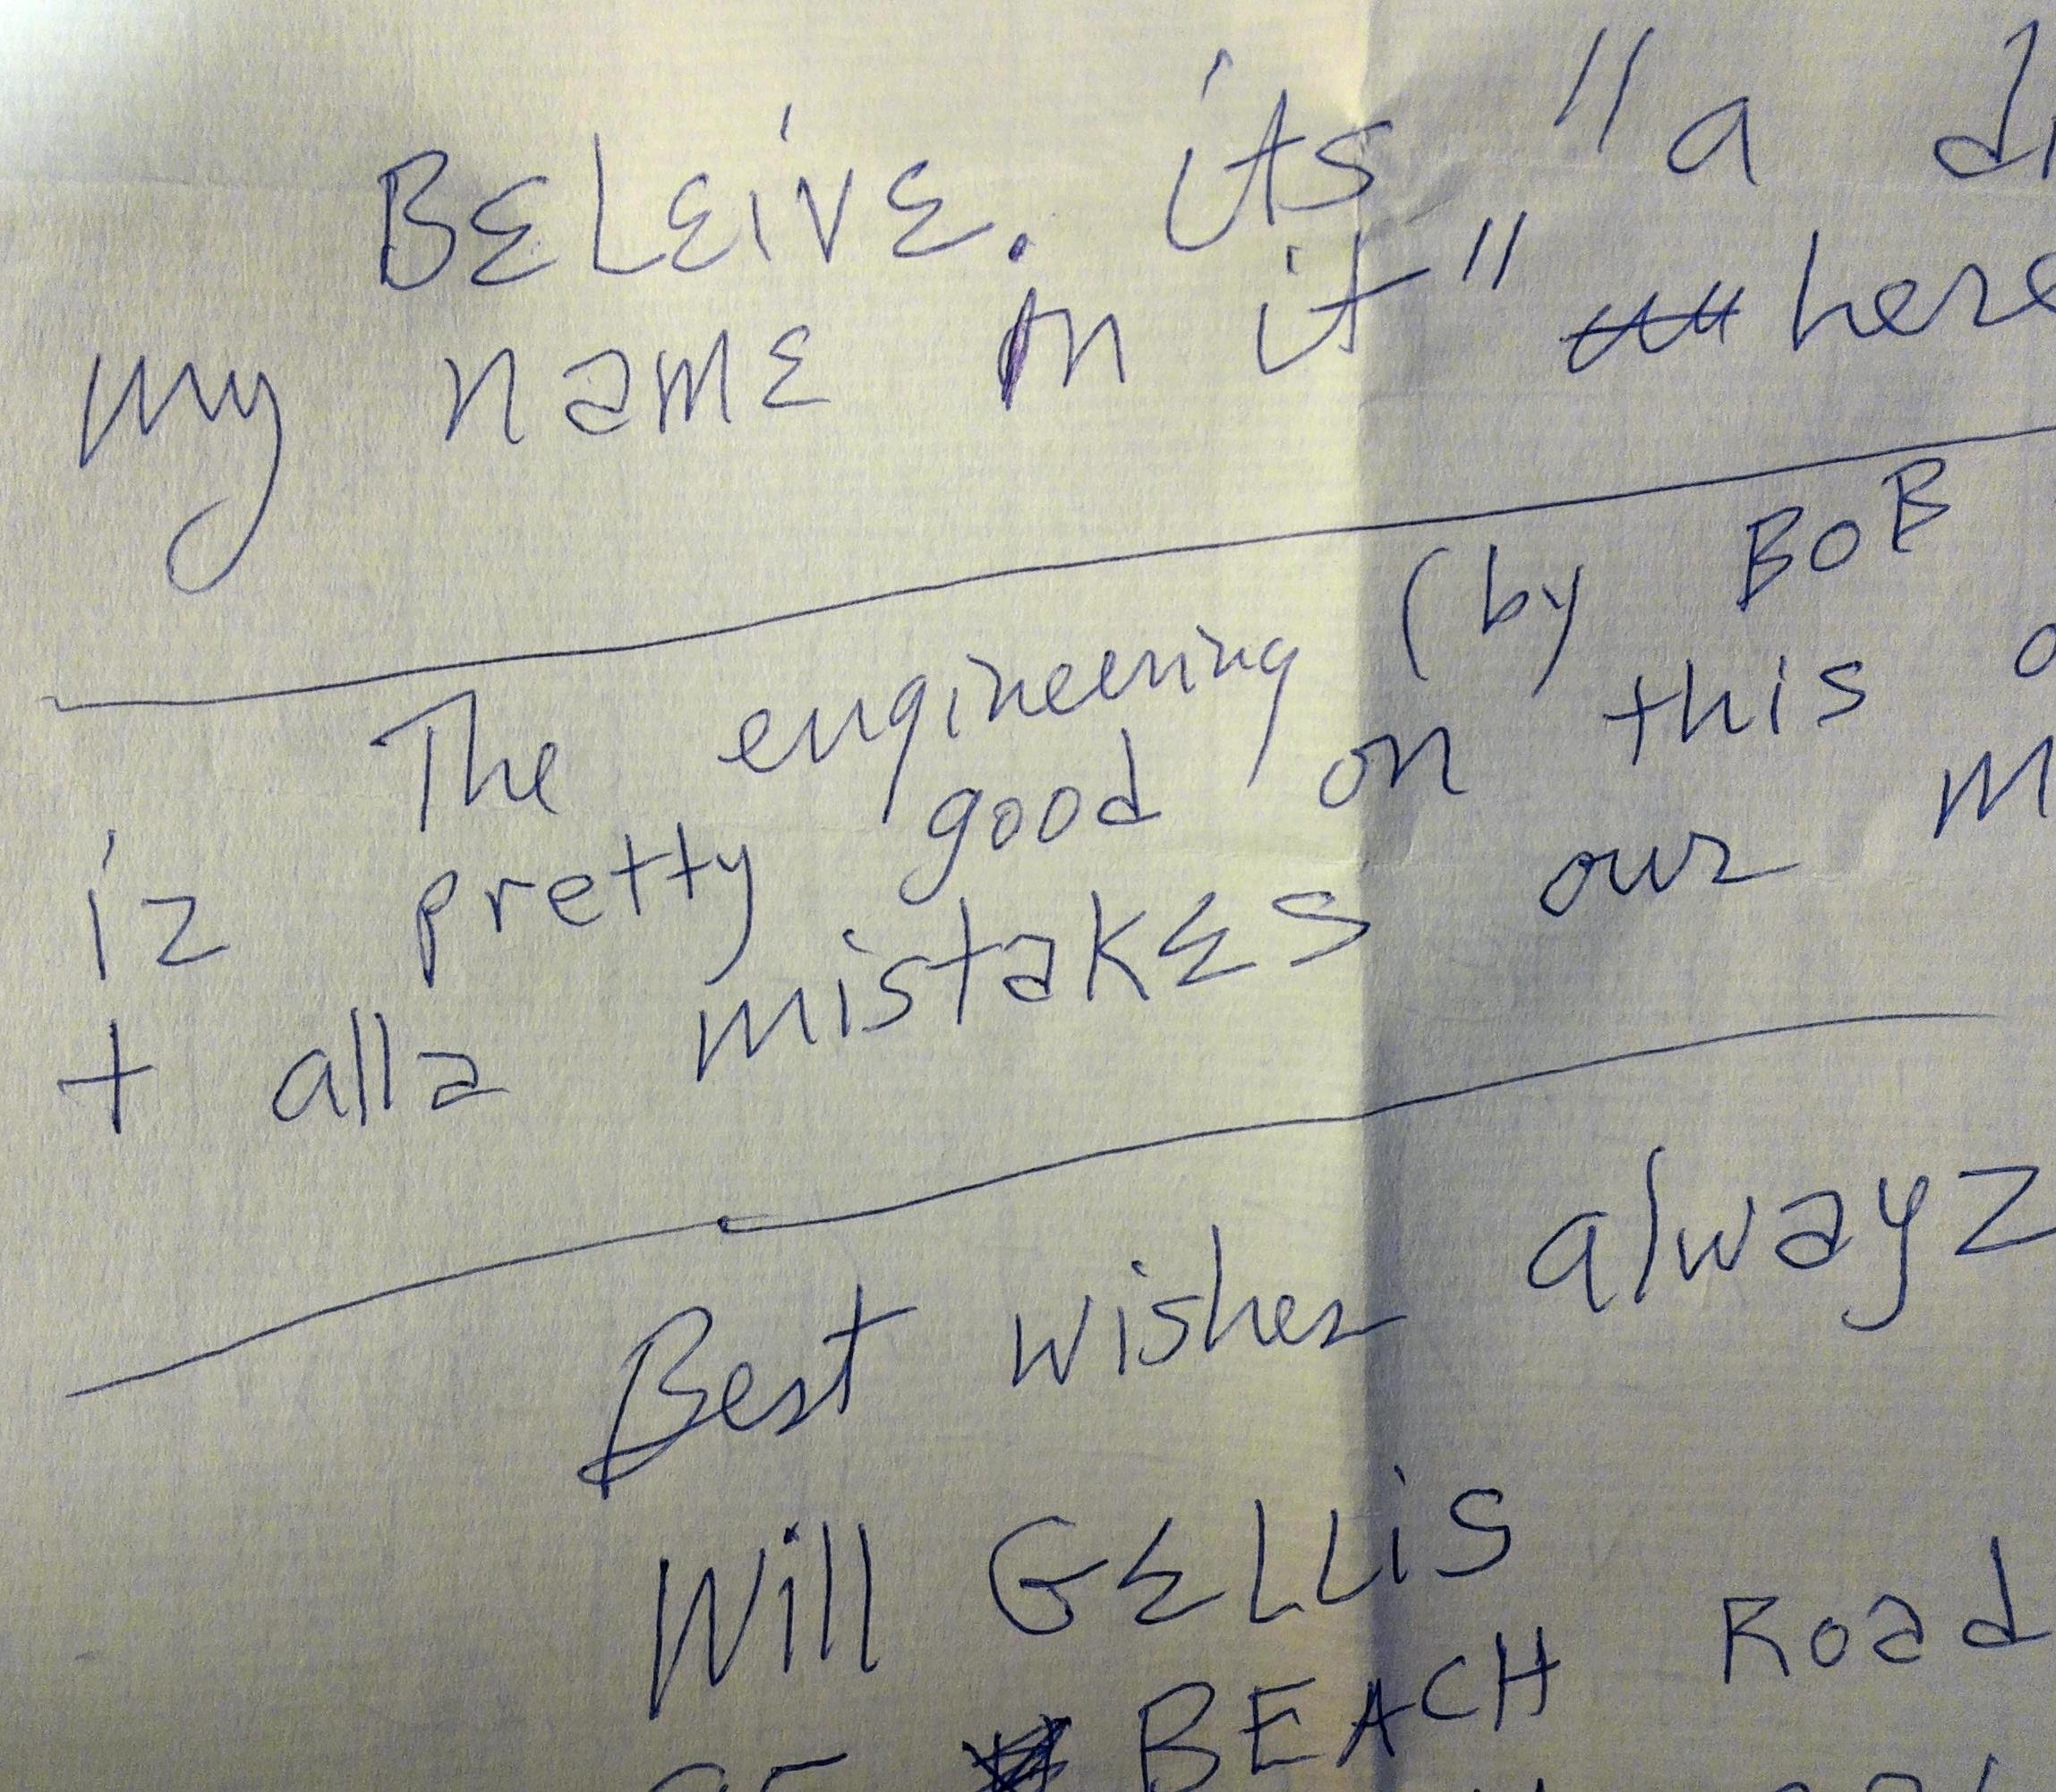 BELEIVE. its "a
my name in it" here
(by BOB
The engineering
iz pretty good on this
+ alla mistakes our
Best wishes alwayz
Will GELLIS
BEACH Road